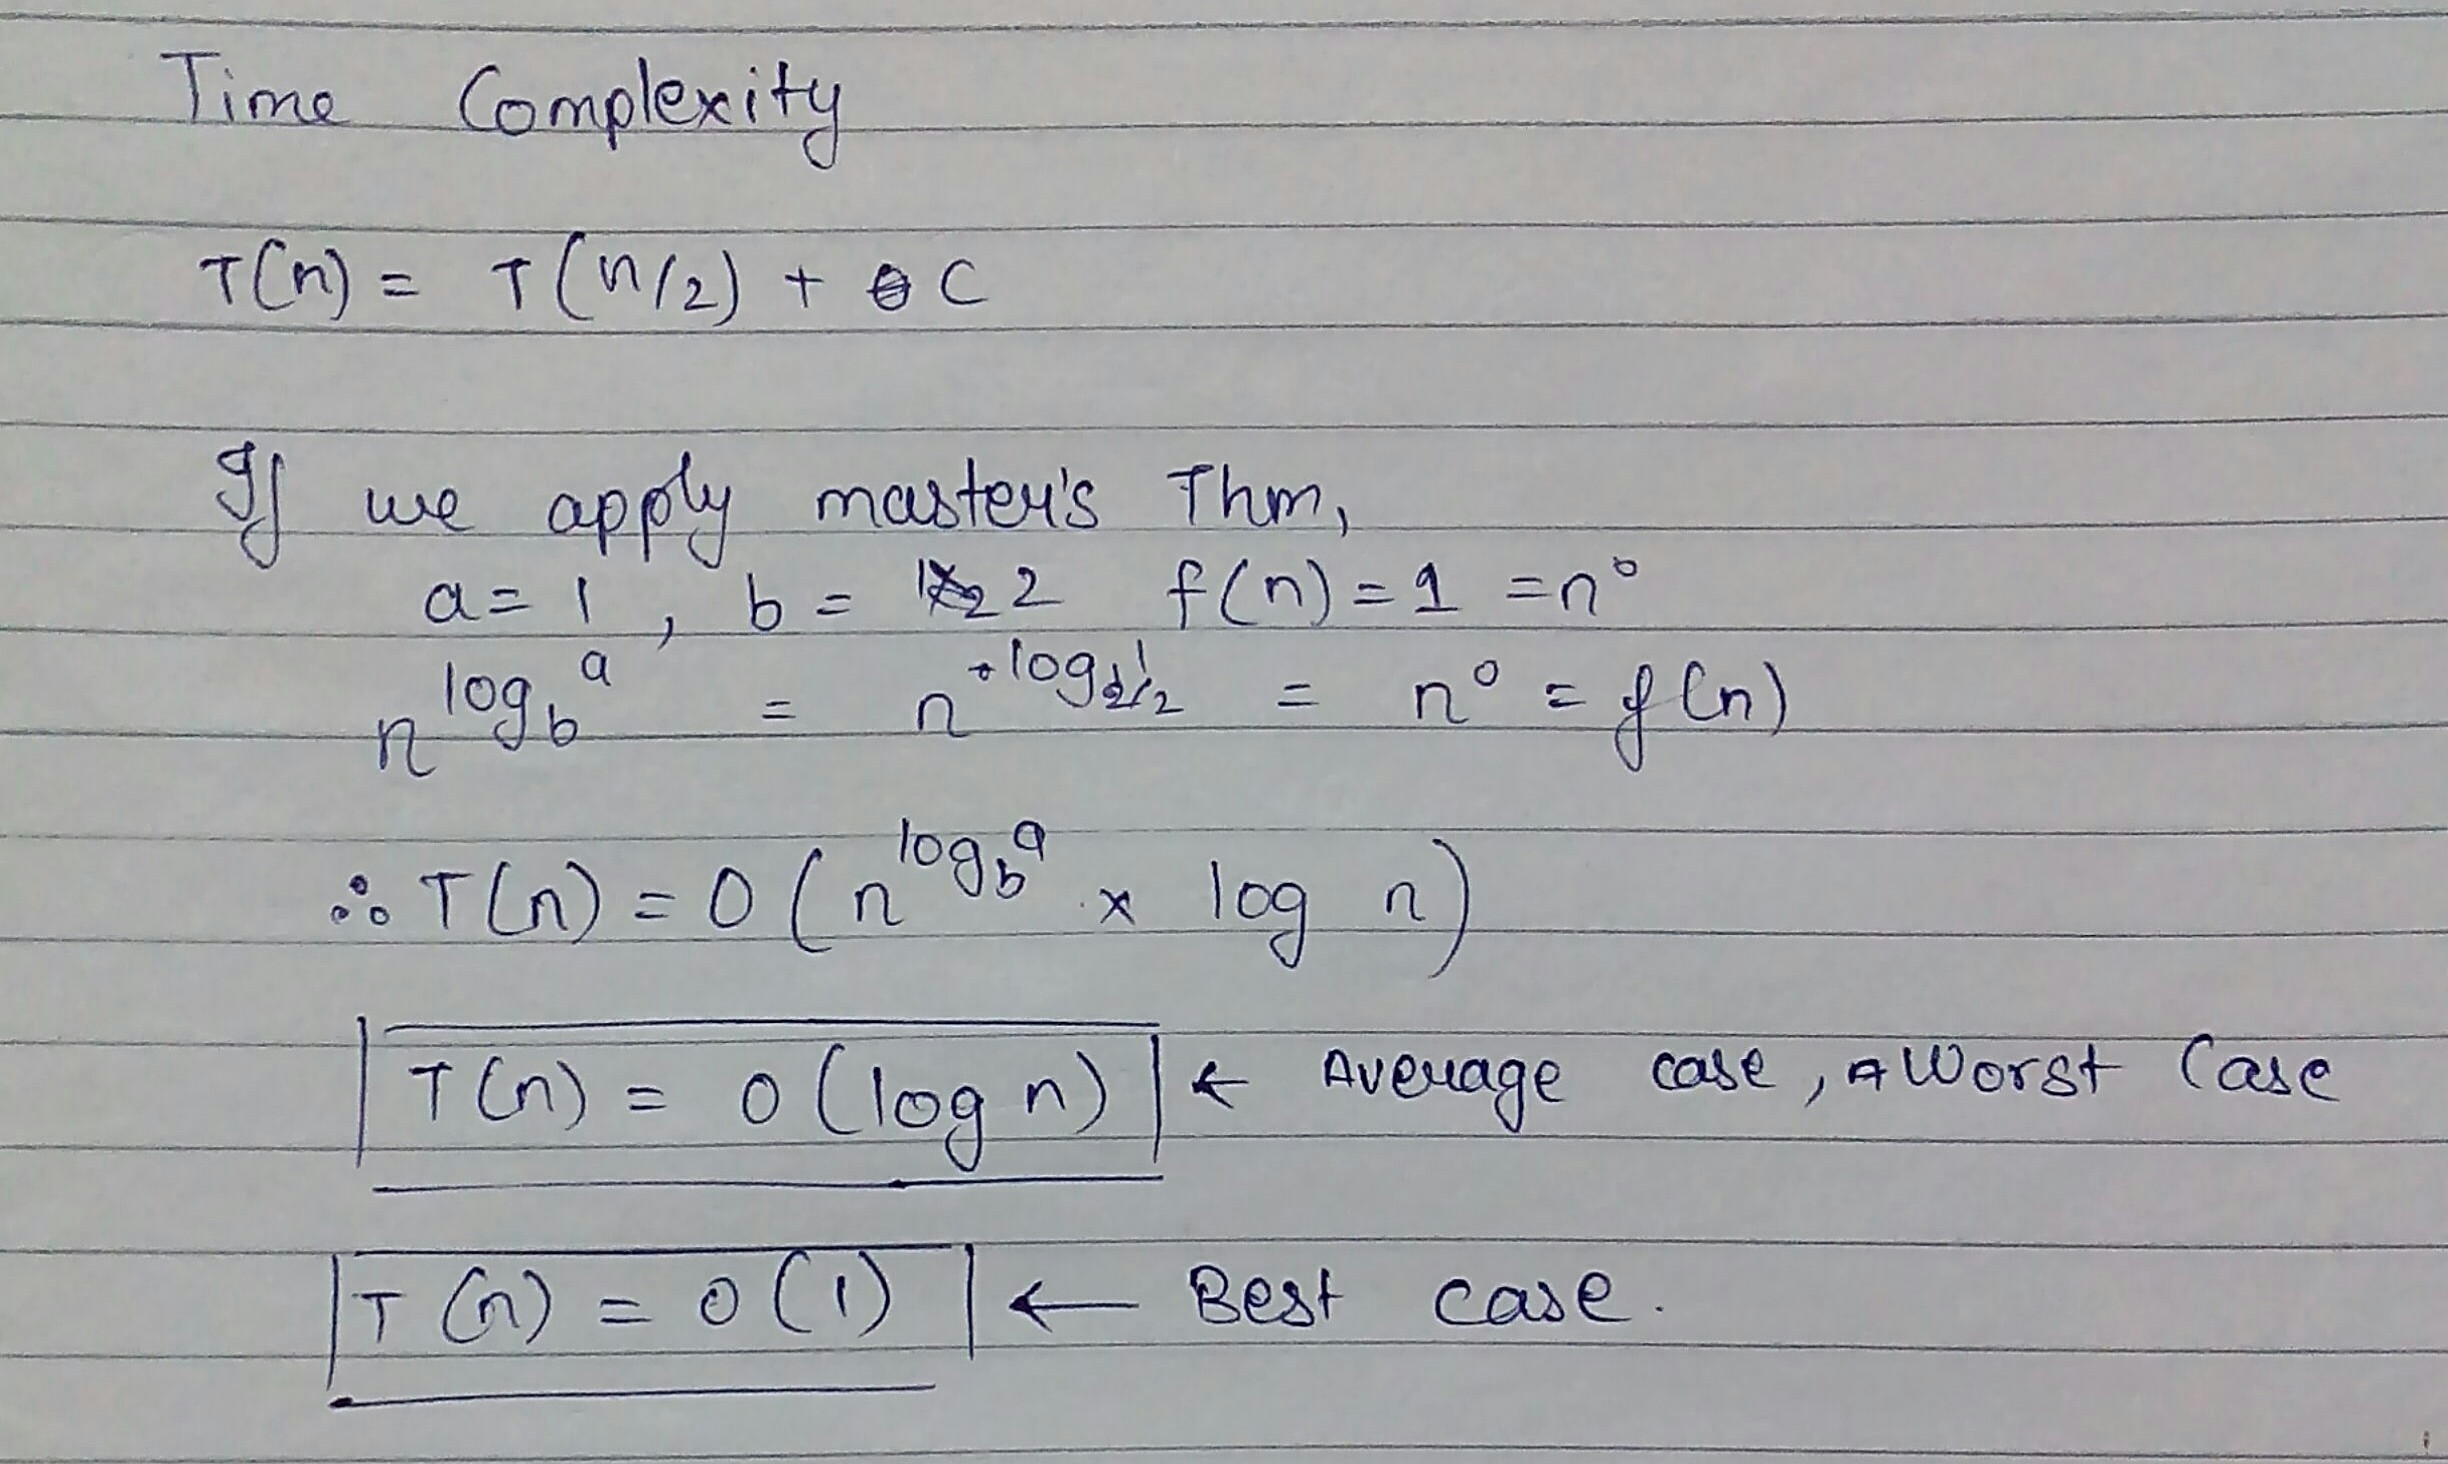 Time Complexity
T(n) = T(n/2) + C
If we apply master's Thm,
a = 1, b = 2 f(n) = 1 = n⁰
n^log_b a = n^log_2 1 = n⁰ = f(n)
∴ T(n) = O(n^log_b a × log n)
T(n) = O(log n) ← Average case, Worst Case
T(n) = O(1) ← Best case.